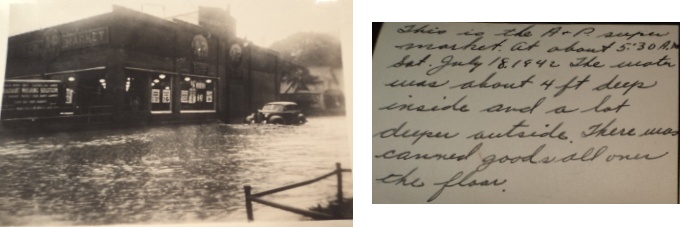 MARKET
This is the A & P. super
market. At about 5:30 A.M
Sat. July 18, 1942 The water
was about 4 ft deep
inside and a lot
deeper outside. There was
canned goods all over
the floor.